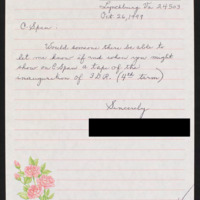 Lynchburg, Va 24503
Oct. 26, 1999
C. Span:
Would someone there be able to
let me know if and when you might
show on C Span a tape of the
inauguration of F.D.R. (4th term)
Sincerely